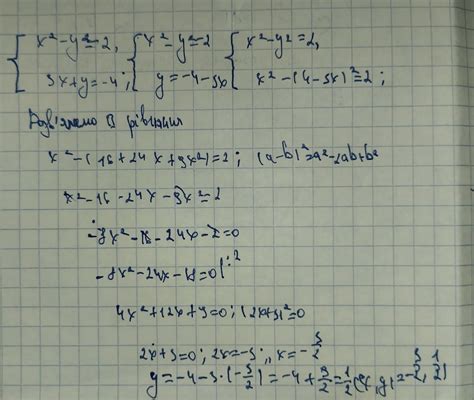 { x²-y²=2, { x²-y²=2 { x²-y²=2,
3x+y=-4; y=-4-3x x²-(4-3x)²=2;
рівняння
x²-(16+24x+9x²)=2; (a-b)²=a²-2ab+b²
x²-16-24x-9x²=2
-8x²-16-24x-2=0
-8x²-24x-18=0 |:2
4x²+12x+9=0; (2x+3)²=0
2x+3=0; 2x=-3; x=-3/2
y=-4-3·(-3/2)=-4+9/2=1/2 (x,y)=-3/2, 1/2)